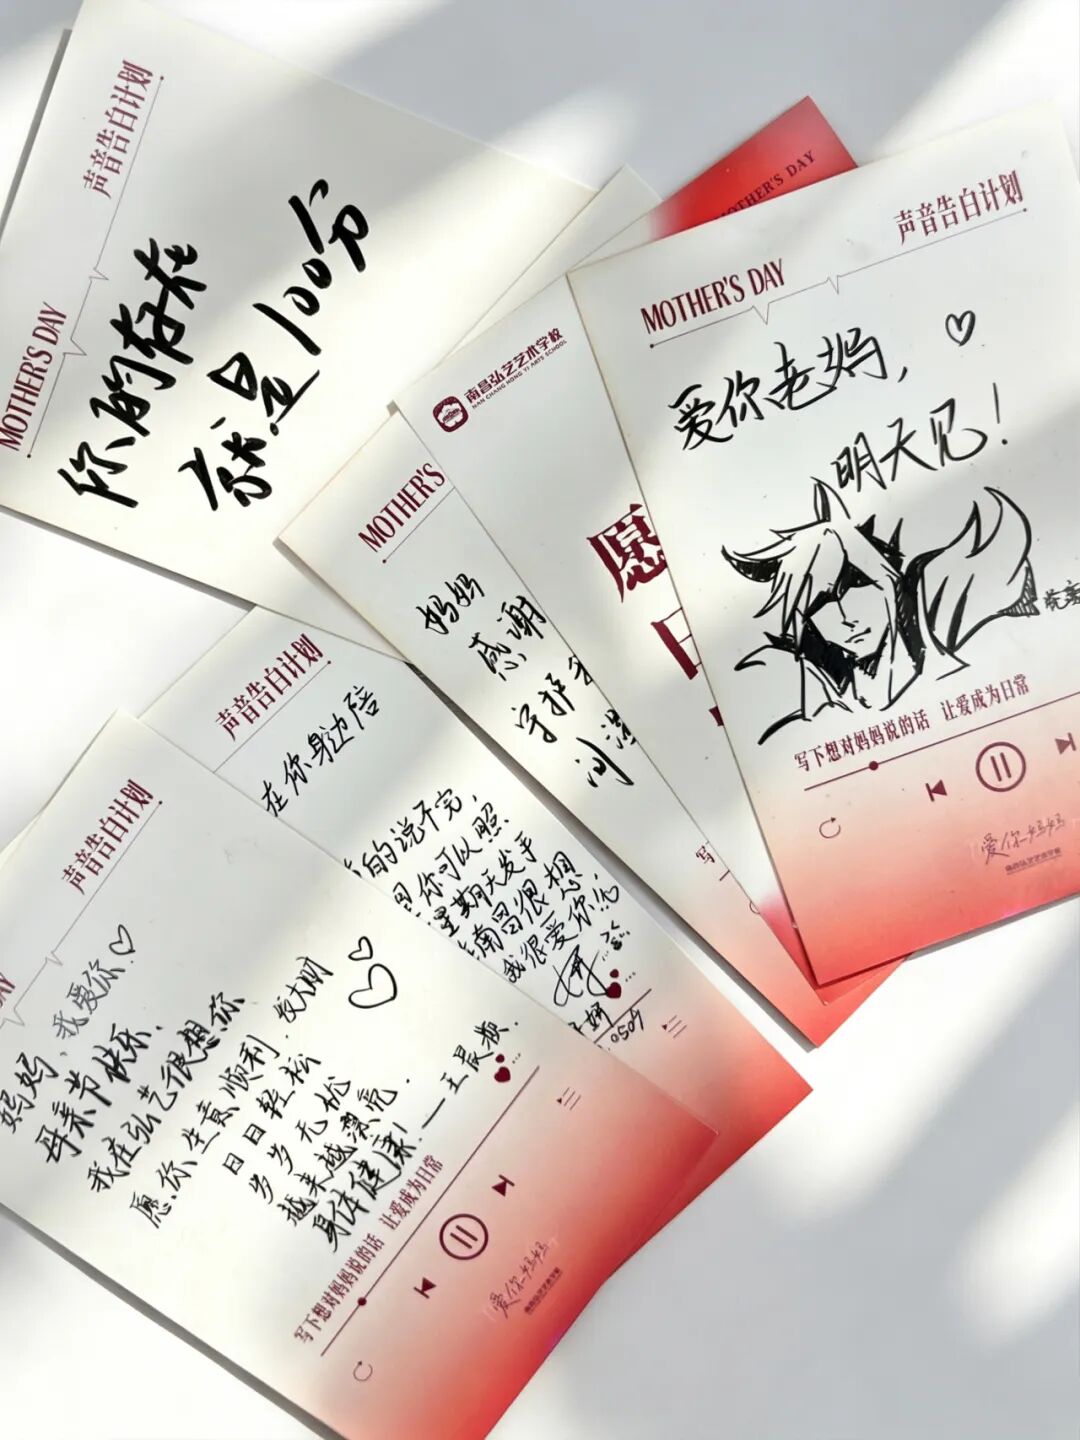 声音告白计划
MOTHER'S DAY
你的存在
就是100分
MOTHER'S DAY
声音告白计划
MOTHER'S DAY
爱你老妈,
明天见!
写下想对妈妈说的话 让爱成为日常
爱你妈妈
南昌弘艺艺术学校
南昌弘艺艺术学校
NAN CHANG HONG YI ARTS SCHOOL
愿
日
写下
MOTHER'S
妈妈
感谢
守护
声音告白计划
在你身边陪
的说不完,
你可以照
星期天发手
南昌很想
我很爱你
妍
0509
声音告白计划
DAY
妈妈,我爱你.
母亲节快乐.
我在弘艺很想你
愿你生意顺利.发大财
日日轻松
岁岁无忧
越来越漂亮.
身体健康!
——王晨颖.
写下想对妈妈说的话 让爱成为日常
爱你妈妈
南昌弘艺艺术学校